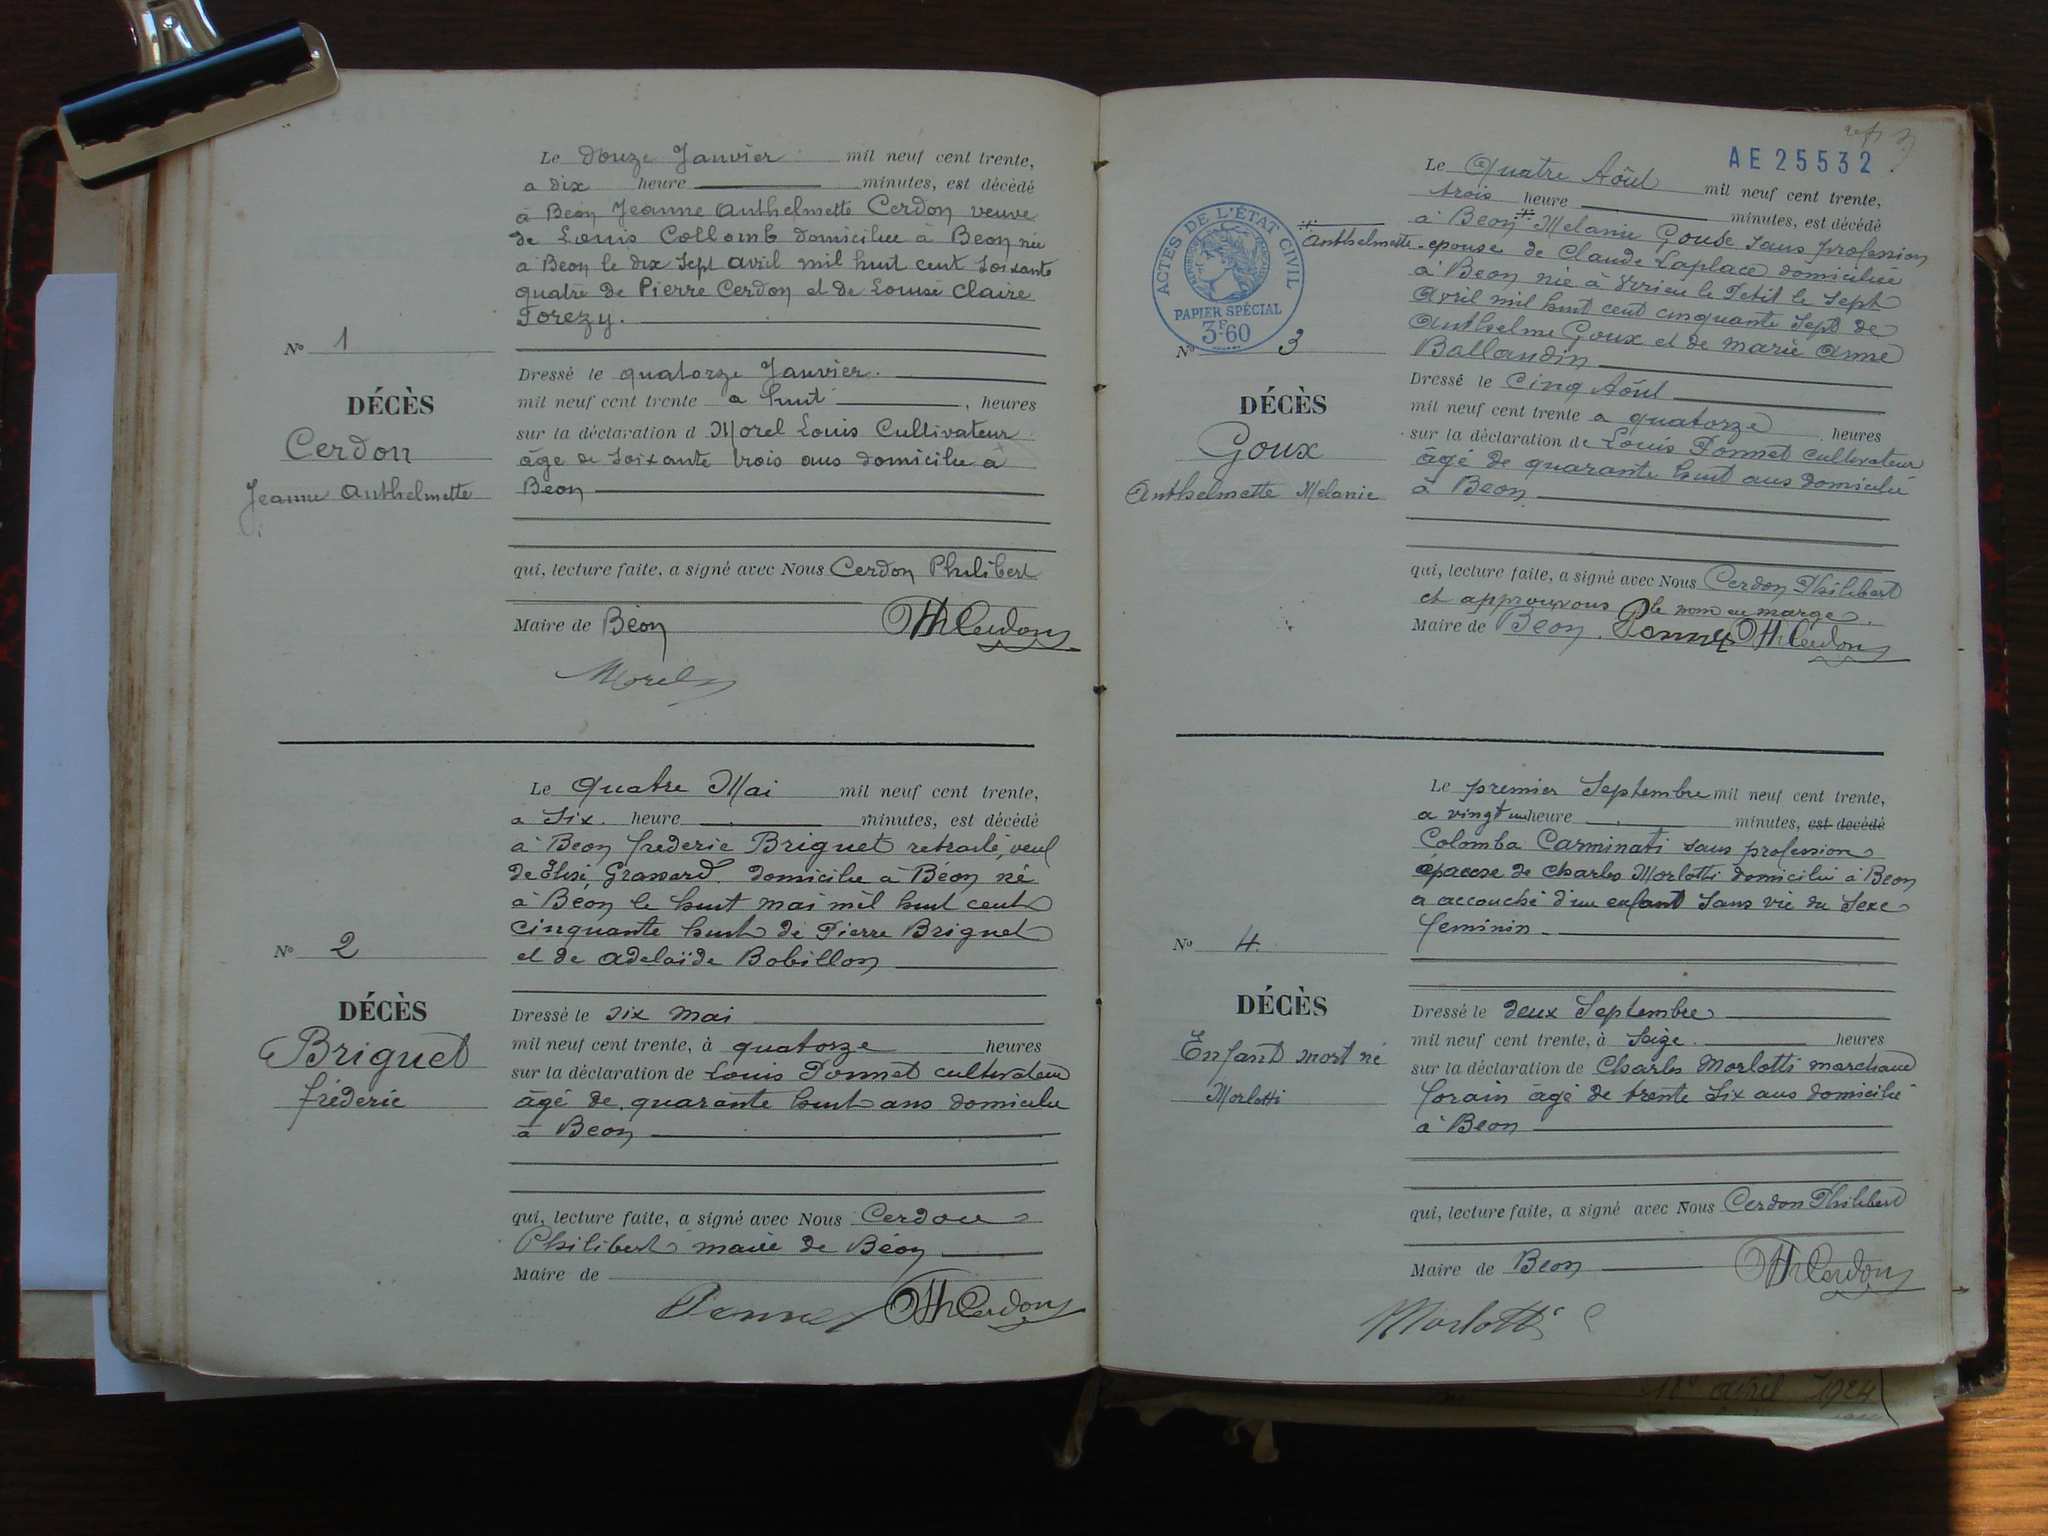 Le douze Janvier mil neuf cent trente,
a dix heure minutes, est décédé
à Béon Jeanne Anthelmette Cerdon veuve
de Louis Collomb domiciliée à Beon née
à Beon le dix sept avril mil huit cent soixante
quatre de Pierre Cerdon et de Louise Claire
Forezy.
No 1
DÉCÈS
Cerdon
Jeanne Anthelmette
Dressé le quatorze Janvier.
mil neuf cent trente a huit, heures
sur la déclaration d Morel Louis Cultivateur
âge de soixante trois ans domicilié à
Béon
qui, lecture faite, a signé avec Nous Cerdon Philibert
Maire de Béon Ph Cerdon
Morel
Le Quatre Mai mil neuf cent trente,
a Six heure minutes, est décédé
à Beon frederic Briguet retraité, veuf
de Elise Grassard domicilié à Béon né
à Béon le huit mai mil huit cent
cinquante huit de Pierre Briguet
et de Adelaïde Bobillon
No 2
DÉCÈS
Briguet
fréderic
Dressé le dix mai
mil neuf cent trente, à quatorze heures
sur la déclaration de Louis Ponnet cultivateur
âgé de quarante huit ans domicilié
à Beon
qui, lecture faite, a signé avec Nous Cerdon
Philibert maire de Béon
Maire de
Ponnet Ph Cerdon
3
AE 25532
Le Quatre Août mil neuf cent trente,
trois heure minutes, est décédé
à Beon # Melanie Gouse sans profession
# Anthelmette
épouse de Claude Laplace domiciliée
à Beon née à Virieu le Petit le sept
Avril mil huit cent cinquante sept de
Anthelme Goux et de marie Anne
Ballandin
ACTES DE L'ÉTAT CIVIL
PAPIER SPÉCIAL
3F60
No 3
DÉCÈS
Goux
Anthelmette Melanie
Dressé le Cinq Août
mil neuf cent trente a quatorze heures
sur la déclaration de Louis Ponnet cultivateur
âgé de quarante huit ans domicilié
à Beon
qui, lecture faite, a signé avec Nous Cerdon Philibert
et approuvons le nom en marge.
Maire de Beon. Ponnet Ph Cerdon
Le premier Septembre mil neuf cent trente,
a vingt un heure minutes, est décédé
Colomba Carminati sans profession
épouse de Charles Morlotti domicilié à Beon
a accouché d'un enfant sans vie du sexe
féminin
No 4
DÉCÈS
Enfant mort né
Morlotti
Dressé le deux Septembre
mil neuf cent trente, à Seize heures
sur la déclaration de Charles Morlotti marchand
forain âgé de trente six ans domicilié
à Beon
qui, lecture faite, a signé avec Nous Cerdon Philibert
Maire de Beon Ph Cerdon
Morlotti
avril 1924